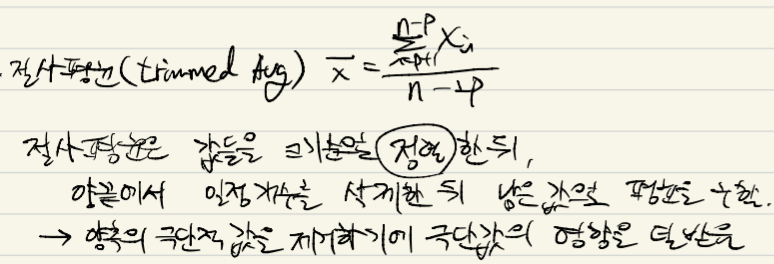 절사평균(trimmed Avg) x̄ = ∑_{i=p+1}^{n-p} Xᵢ / n-2p
절사평균은 값들을 크기순으로 정렬한 뒤,
양끝에서 일정 개수를 삭제한 뒤 남은 값으로 평균을 구함.
→ 양쪽의 극단적 값을 제거하기에 극단값의 영향을 덜 받음